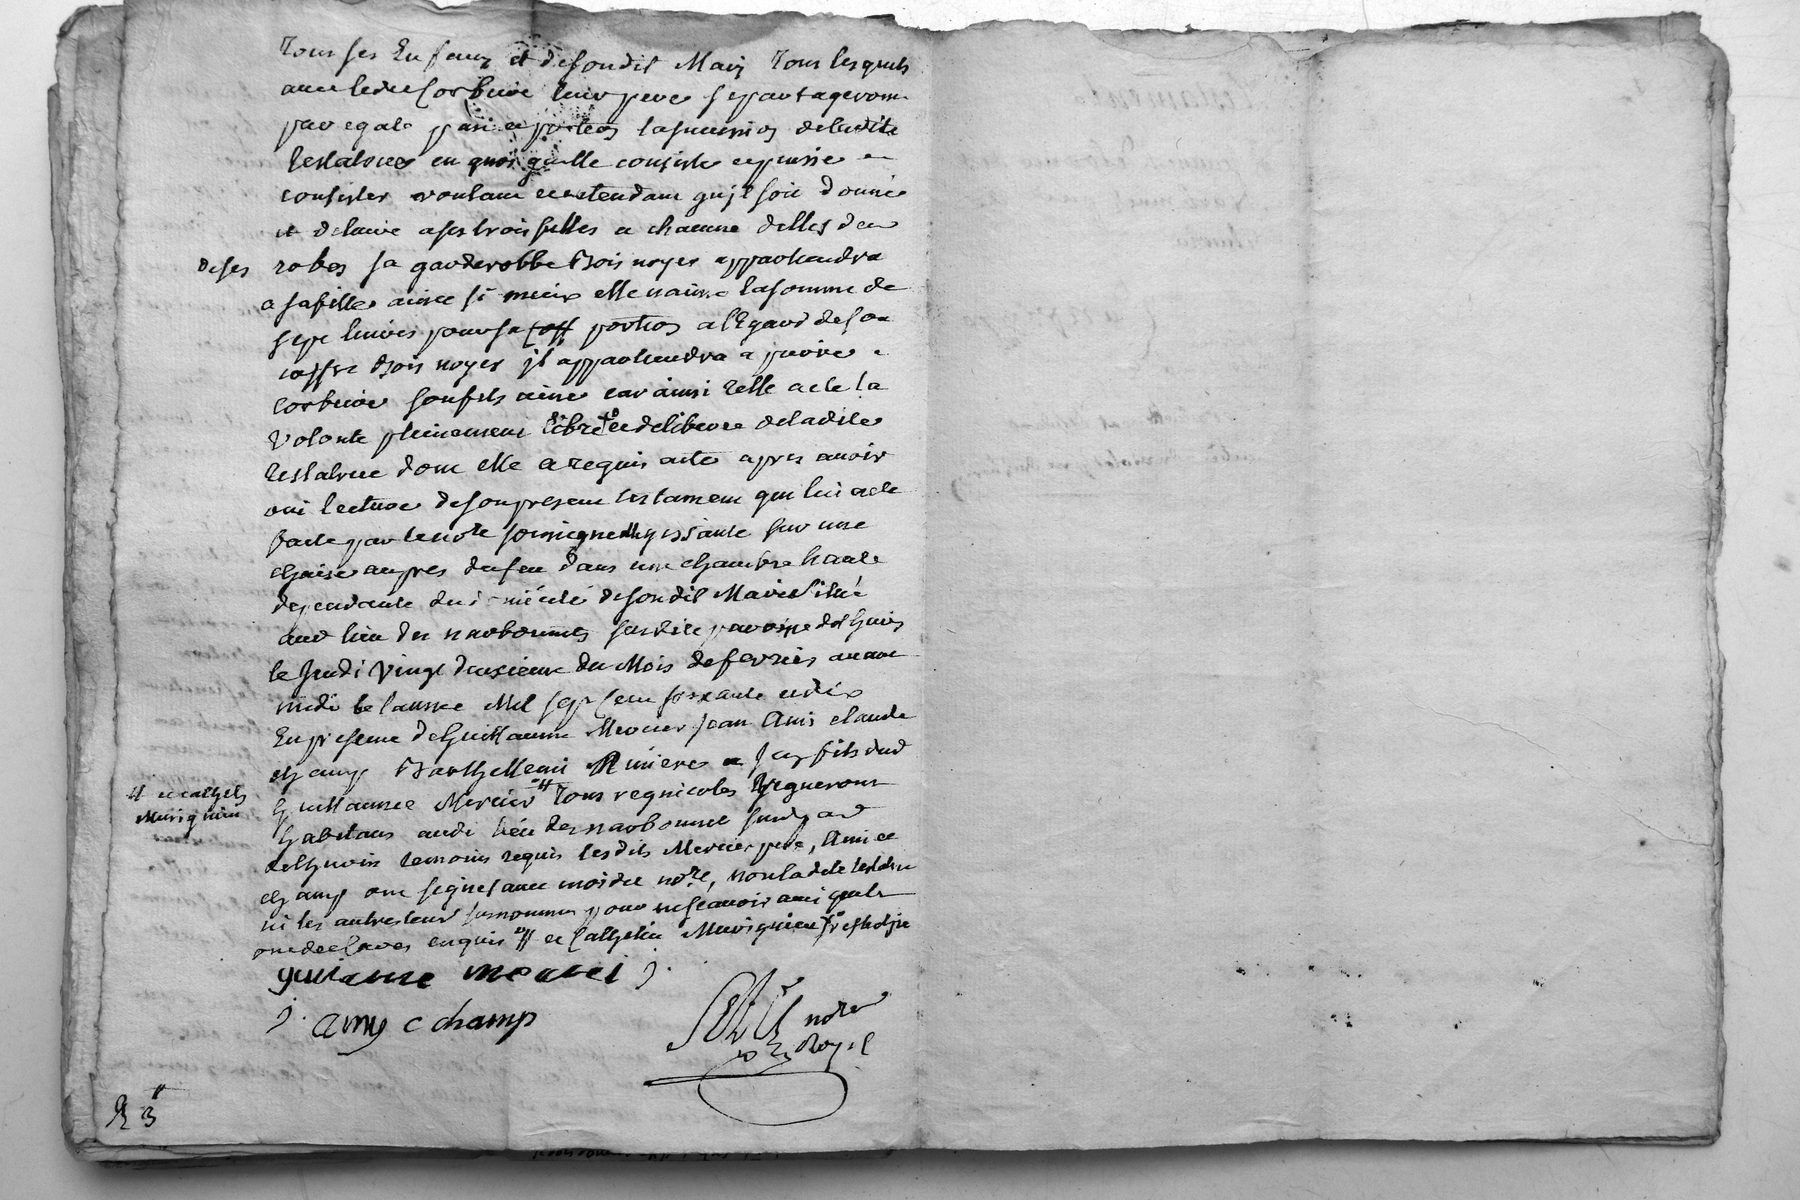 tous ses Enfans et desondit Mary Tous lesquels
avec ledit Corbiere leur pere se partageront
par egale part et portion la succession de ladite
testatrice en quoi qu'elle consiste et puisse
consister voulant et entendant qu'il soit donné
et delaivré a ses trois filles a chacune d'elles deux
de ses robes sa garderobbe Bois noyer appartiendra
a sa fille ainée si mieux elle n'aime la somme de
sept livres pour sa portion a l'Egard de son
coffre Bois noyer jl appartiendra a pierre
Corbiere son fils aine car ainsi telle a ete la
Volonte pleinement libre et deliberee de ladite
testatrice dont elle a requis acte apres avoir
oui lecture de son present testament qui lui a ete
faite par le no.re soussigne gissante sur une
chaise aupres du feu Dans une chambre haute
dependante du de sondit Mari Situé
au lieu des narbonnes susdite paroisse
le Jeudi Vingt deuxieme du Mois de fevrier avant
midi de l'annee Mil sept cent soixante et dix
En presence de Guillaume Mercier Jean Ami claude
champ Barthellemi Riviere fils dud
Guillaume Mercier Tous regnicoles
habitans audi lieu des narbonnes
temoins requis lesdits Mercier pere, Ami et
champ ont signés avec moidit no.re, non ladite testatrice
ni les autres temoins susnommes pour ne scavoir ainsi quils
ont declares enquis et Catherin
# et catherin
guilaume mercié
j. amy c champ
no.re
Royal
R 3#